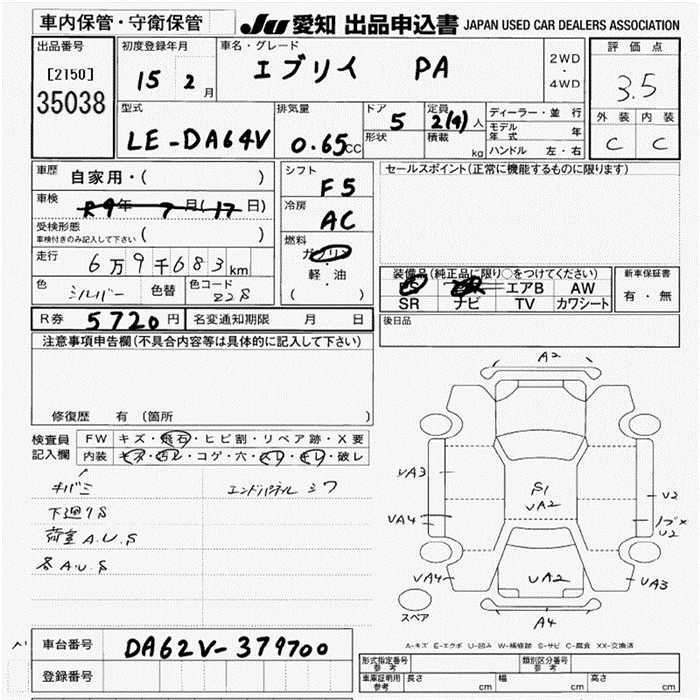 車内保管・守衛保管
JU 愛知 出品申込書 JAPAN USED CAR DEALERS ASSOCIATION
出品番号
[2150]
35038
初度登録年月
15 2 月
車名・グレード
エブリイ PA
2WD
・
4WD
評価点
3.5
外装 内装
C C
型式
LE-DA64V
排気量
0.65 CC
ドア
5
形状
定員
2(4)人
積載
kg
ディーラー・並 行
モデル年式 年
ハンドル 左・右
車歴
自家用・( )
車検
R9年 7月(17日)
受検形態
車検付きのみ記入して下さい ( )
走行
6万9千683km
色
シルバー
色替
色コード
Z2S
シフト
F5
冷房
AC
燃料
ガソリン
軽・油
( )
セールスポイント(正常に機能するものに限ります)
装備品(純正品に限り○をつけてください)
PS エアB AW
SR ナビ TV カワシート
新車保証書
有・無
後日品
R券 5720円
名変通知期限 月 日
注意事項申告欄(不具合内容等は具体的に記入して下さい)
修復歴 有 (箇所 )
検査員記入欄
FW キズ・飛石・ヒビ割・リペア跡・X要
内装 キズ・汚レ・コゲ・穴・スレ・キレ・破レ
キバミ
エンドパネル シワ
下廻りS
荷室A.U.S
各A.U.S
A2
UA3
UA4
UA4
S1
UA2
U2
U2
UA2
UA3
A4
スペア
A-キズ E-エクボ U-凹み W-補修跡 S-サビ C-腐食 XX-交換済
車台番号 DA62V-379700
登録番号
形式指定番号
参考
類別区分番号
参考
車庫証明用
参考
長さ cm
幅 cm
高さ cm